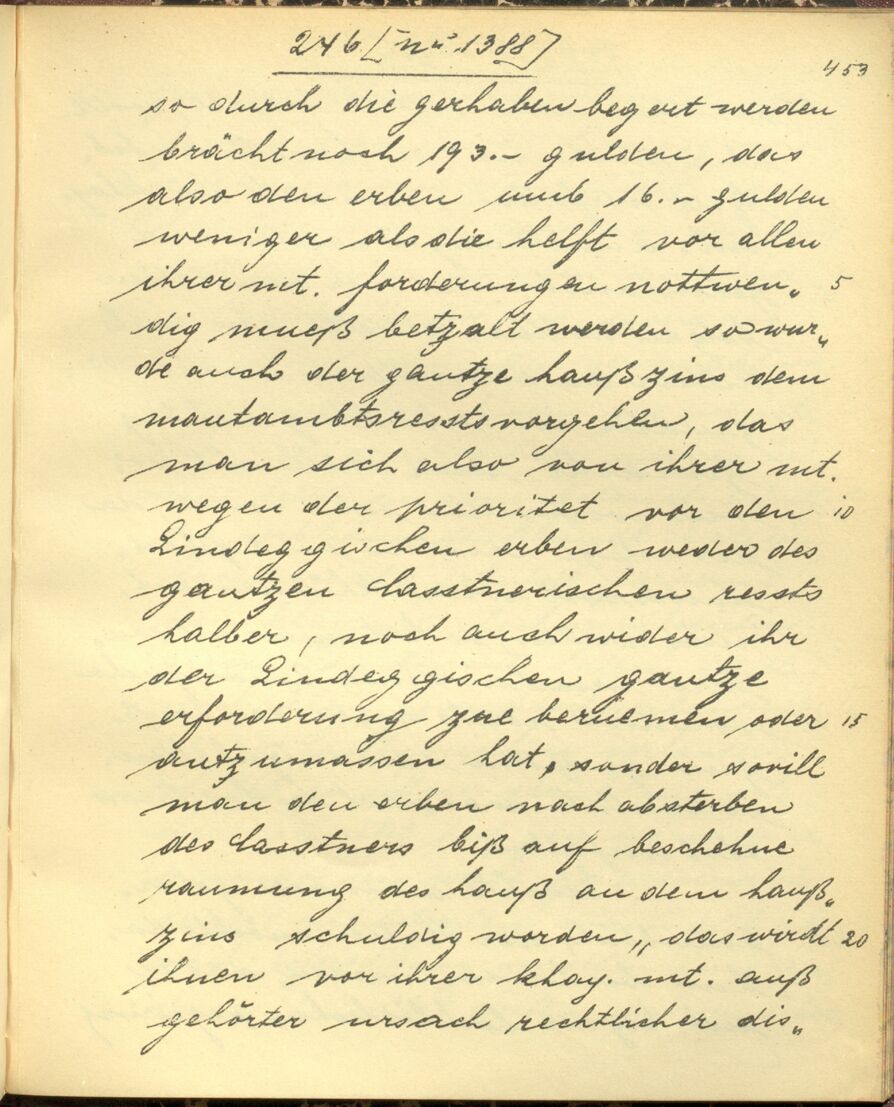 246 [nu 1388]
453
so durch die gerhaben begert werden
brächt noch 193.- gulden, das
also den erben umb 16.- gulden
weniger als die helft vor allen
ihrer mt. forderungen nottwen„ 5
dig mueß betzalt werden so wur„
de auch der gantze haußzins dem
mautambtsressts vorgehen, das
man sich also von ihrer mt.
wegen der prioritet vor den 10
Lindeggischen erben weder des
gantzen Casstnerischen ressts
halber, noch auch wider ihr
der Lindeggischen gantze
erforderung zue beruemen oder 15
antzumassen hat, sonder sovill
man den erben nach absterben
des Casstners biß auf beschehne
raumung des hauß an dem hauß„
zins schuldig worden, das wirdt 20
ihnen vor ihrer khay. mt. auß
gehörter ursach rechtlicher dis„